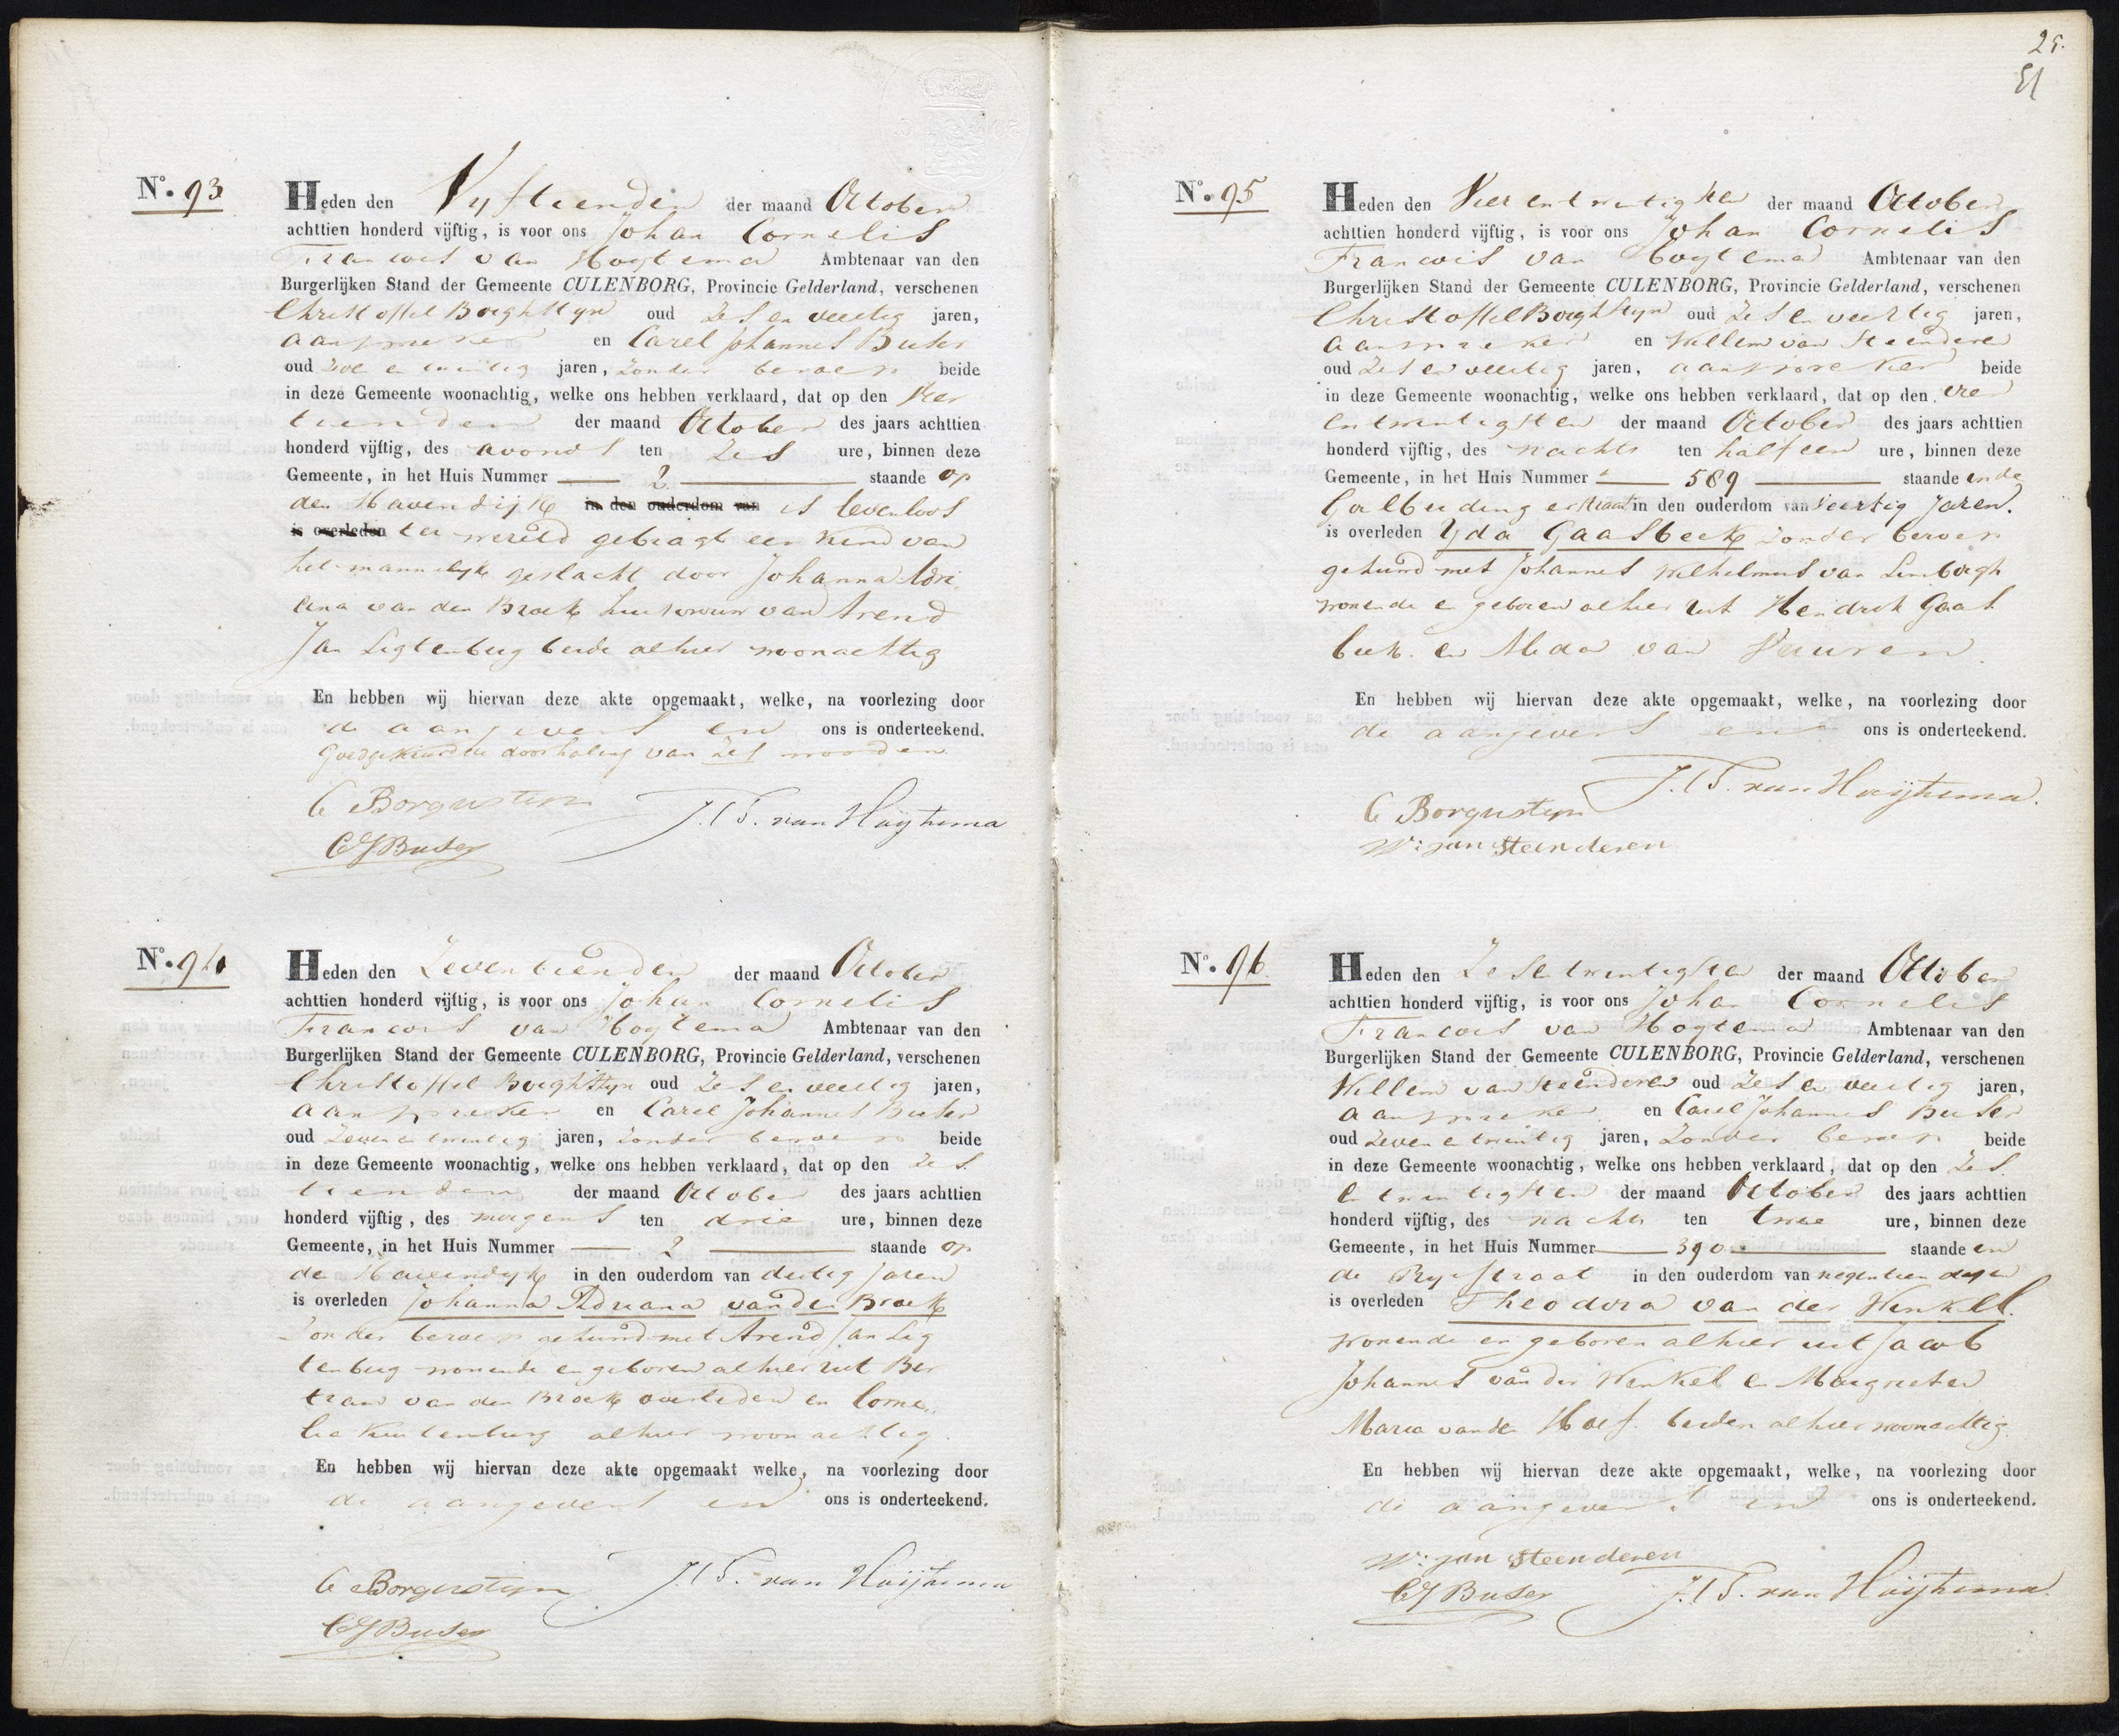 N.o 93
Heden den Vyftienden der maand October
achttien honderd vijftig, is voor ons Johan Cornelis
Francois van Hoytema Ambtenaar van den
Burgerlijken Stand der Gemeente CULENBORG, Provincie Gelderland, verschenen
Christoffel Borghstyn oud Zes en veertig jaren,
aanspreker en Carel Johannes Buser
oud Zeven en twintig jaren, zonder beroep beide
in deze Gemeente woonachtig, welke ons hebben verklaard, dat op den Veer
tienden der maand October des jaars achttien
honderd vijftig, des avonds ten Zes ure, binnen deze
Gemeente, in het Huis Nummer 2 staande op
den Havendijk in den ouderdom van is levenloos
is overleden ter wereld gebragt een kind van
het mannelijk geslacht door Johanna Adri
ana van den Broek huisvrouw van Arend
Jan Ligtenberg beide alhier woonachtig
En hebben wij hiervan deze akte opgemaakt, welke, na voorlezing door
de aangevers en ons is onderteekend.
Goedgekeurd de doorhaling van zes woorden
C Borgustyn J.C.F. van Hoijtema
C J Buser
N.o 94
Heden den Zeventienden der maand October
achttien honderd vijftig, is voor ons Johan Cornelis
Francois van Hoytema Ambtenaar van den
Burgerlijken Stand der Gemeente CULENBORG, Provincie Gelderland, verschenen
Christoffel Borghstyn oud Zes en veertig jaren,
aanspreker en Carel Johannes Buser
oud Zeven en twintig jaren, zonder beroep beide
in deze Gemeente woonachtig, welke ons hebben verklaard, dat op den Zes
tienden der maand October des jaars achttien
honderd vijftig, des morgens ten drie ure, binnen deze
Gemeente, in het Huis Nummer 2 staande op
den Havendyk in den ouderdom van dertig jaren
is overleden Johanna Adriana van den Broek
zonder beroep gehuwd met Arend Jan Lig
tenberg wonende en geboren alhier uit Ber
tram van den Broek overleden en Corne
lia Kuilenburg alhier woonachtig.
En hebben wij hiervan deze akte opgemaakt welke, na voorlezing door
de aangevers en ons is onderteekend.
C Borgustyn J.C.F. van Hoijtema
C J Buser
25.
51
N.o 95
Heden den Vier en twintigsten der maand October
achttien honderd vijftig, is voor ons Johan Cornelis
Francois van Hoytema Ambtenaar van den
Burgerlijken Stand der Gemeente CULENBORG, Provincie Gelderland, verschenen
Christoffel Borghstyn oud Zes en veertig jaren,
aanspreker en Willem van Steenderen
oud Zes en veertig jaren, aanspreker beide
in deze Gemeente woonachtig, welke ons hebben verklaard, dat op den vier
en twintigsten der maand October des jaars achttien
honderd vijftig, des nachts ten half een ure, binnen deze
Gemeente, in het Huis Nummer 589 staande in de
Goilberdingerstraat in den ouderdom van Veertig Jaren.
is overleden Yda Gaasbeek zonder beroep
gehuwd met Johannes Wilhelmus van Limborgh
wonende en geboren alhier uit Hendrik Gaas
beek en Alida van Vuuren.
En hebben wij hiervan deze akte opgemaakt, welke, na voorlezing door
de aangevers en ons is onderteekend.
J.C.F. van Hoijtema.
C Borgustyn
W: van Steenderen
N.o 96.
Heden den Zes en twintigsten der maand October
achttien honderd vijftig, is voor ons Johan Cornelis
Francois van Hoytema Ambtenaar van den
Burgerlijken Stand der Gemeente CULENBORG, Provincie Gelderland, verschenen
Willem van Steenderen oud Zes en veertig jaren,
aanspreker en Carel Johannes Buser
oud Zeven en twintig jaren, zonder beroep beide
in deze Gemeente woonachtig, welke ons hebben verklaard, dat op den Zes
en twintigsten der maand October des jaars achttien
honderd vijftig, des nachts ten twee ure, binnen deze
Gemeente, in het Huis Nummer 390 staande in
de Rypstraat in den ouderdom van negentien dagen
is overleden Theodora van der Winkel.
wonende en geboren alhier uit Jacob
Johannes van der Winkel en Margrieta
Maria van der Hoef. beiden alhier woonachtig.
En hebben wij hiervan deze akte opgemaakt, welke, na voorlezing door
de aangevers en ons is onderteekend.
W: van Steenderen
C J Buser J.C.F. van Hoijtema.